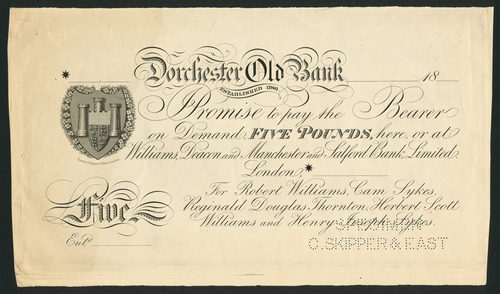 Dorchester Old Bank 18
ESTABLISHED 1786
I Promise to pay the Bearer
on Demand FIVE POUNDS, here, or at
Williams, Deacon and Manchester and Salford Bank, Limited
London,
For Robert Williams, Cam Sykes,
Reginald Douglas Thornton, Herbert Scott
Williams and Henry Joseph Sykes.
Five
Entd
SPECIMEN
C. SKIPPER & EAST